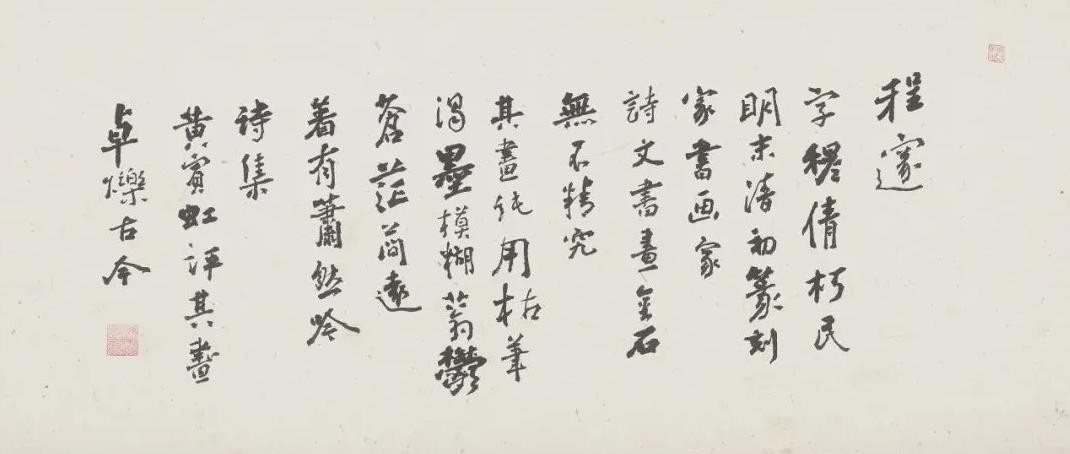 程邃
字穆倩朽民
明末清初篆刻
家書画家
詩文書畫金石
無不精究
其畫純用枯筆
渴墨模糊蓊鬱
蒼茫簡遠
着有簫然吟
詩集
黃賓虹評其畫
卓爍古今